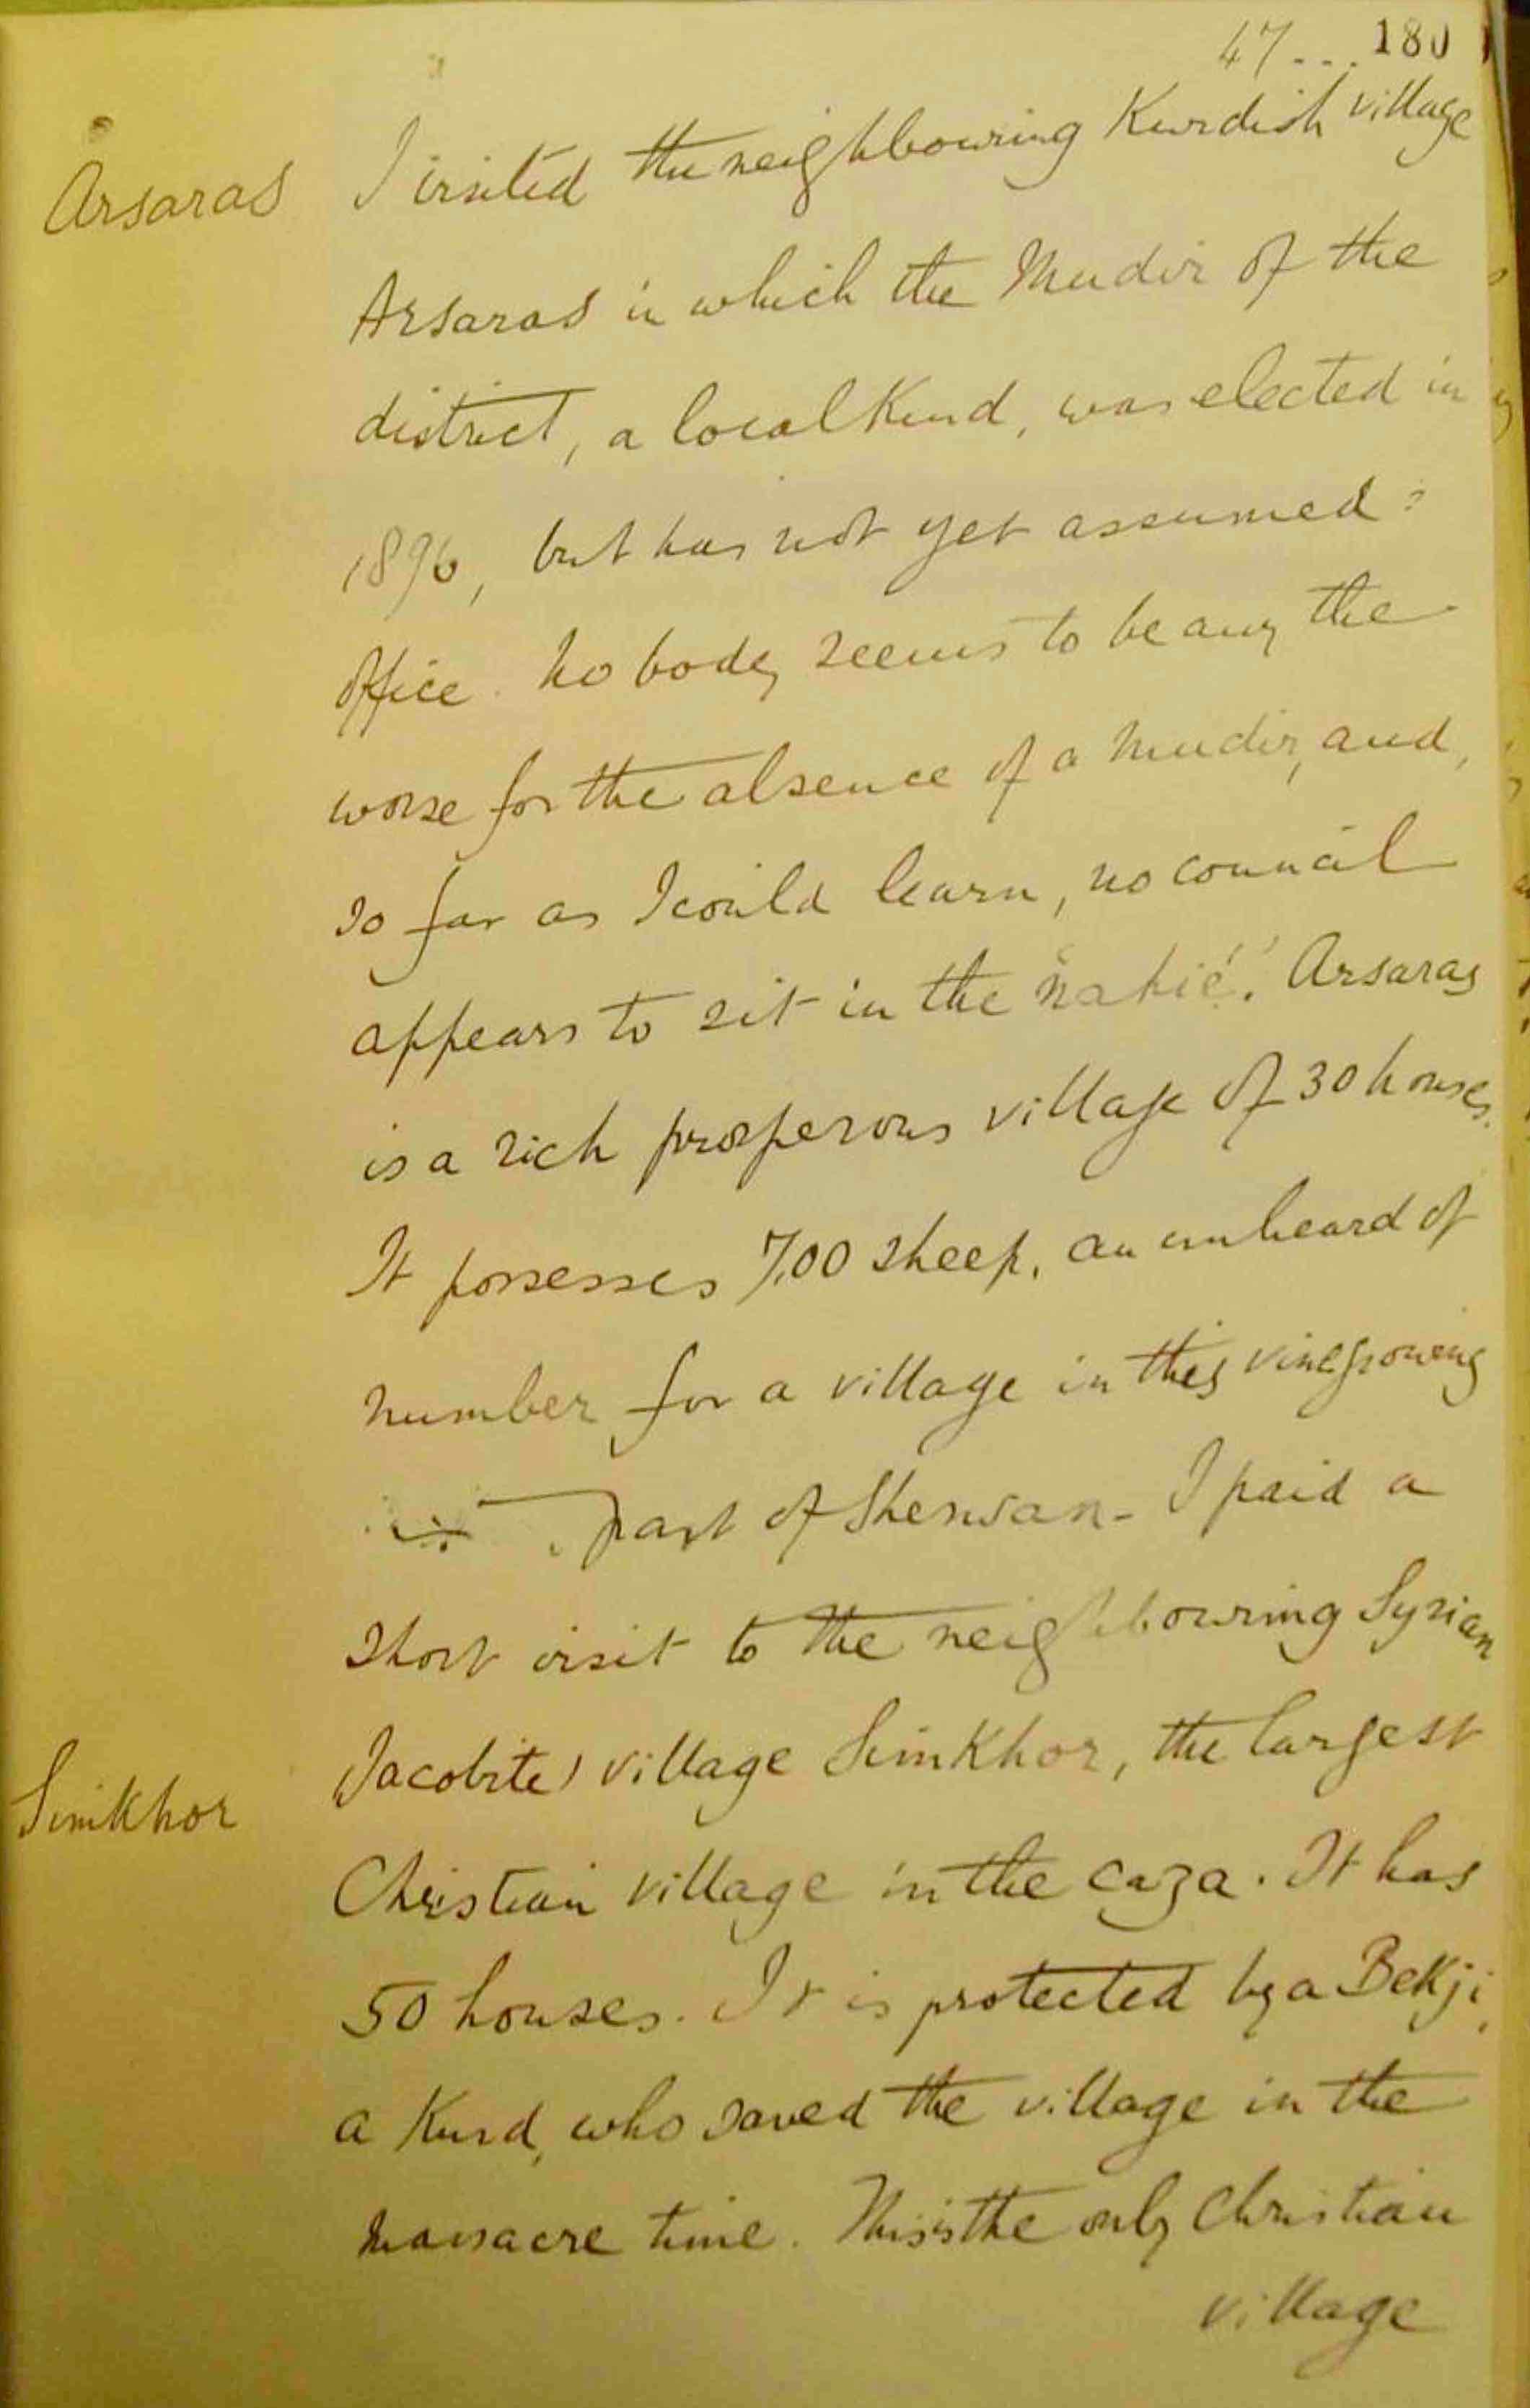 47... 180
Arsaras I visited the neighbouring Kurdish village
Arsaras in which the Mudir of the
district, a local Kurd, was elected in
1896, but has not yet assumed
office. No body seems to be any the
worse for the absence of a Mudir, and,
so far as I could learn, no council
appears to sit in the "nahié". Arsaras
is a rich prosperous village of 30 houses.
It possesses 700 sheep, an unheard of
number for a village in this vinegrowing
part of Sherwan - I paid a
short visit to the neighbouring Syrian
Jacobite) village Simkhor, the largest
Simkhor
Christian village in the caza. It has
50 houses. It is protected by a Bekji,
a Kurd, who saved the village in the
massacre time. This is the only Christian
village